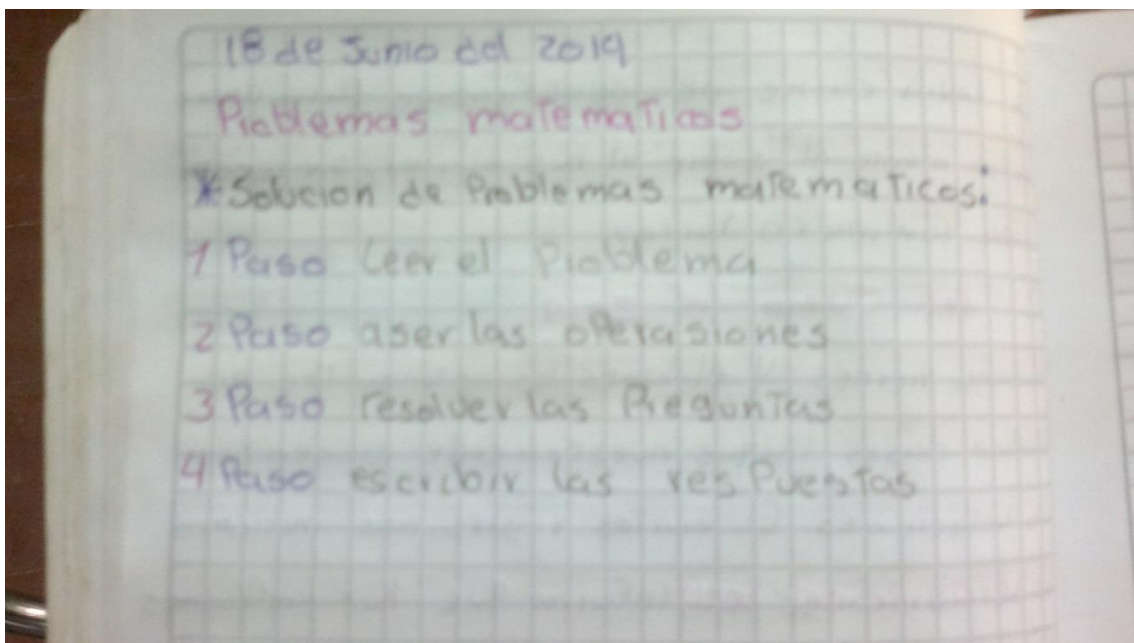 18 de Junio del 2019
Problemas matematicos
*Solucion de Problemas matematicos:
1 Paso Leer el Problema
2 Paso aser las operasiones
3 Paso resolver las Preguntas
4 Paso escribir las resPuestas